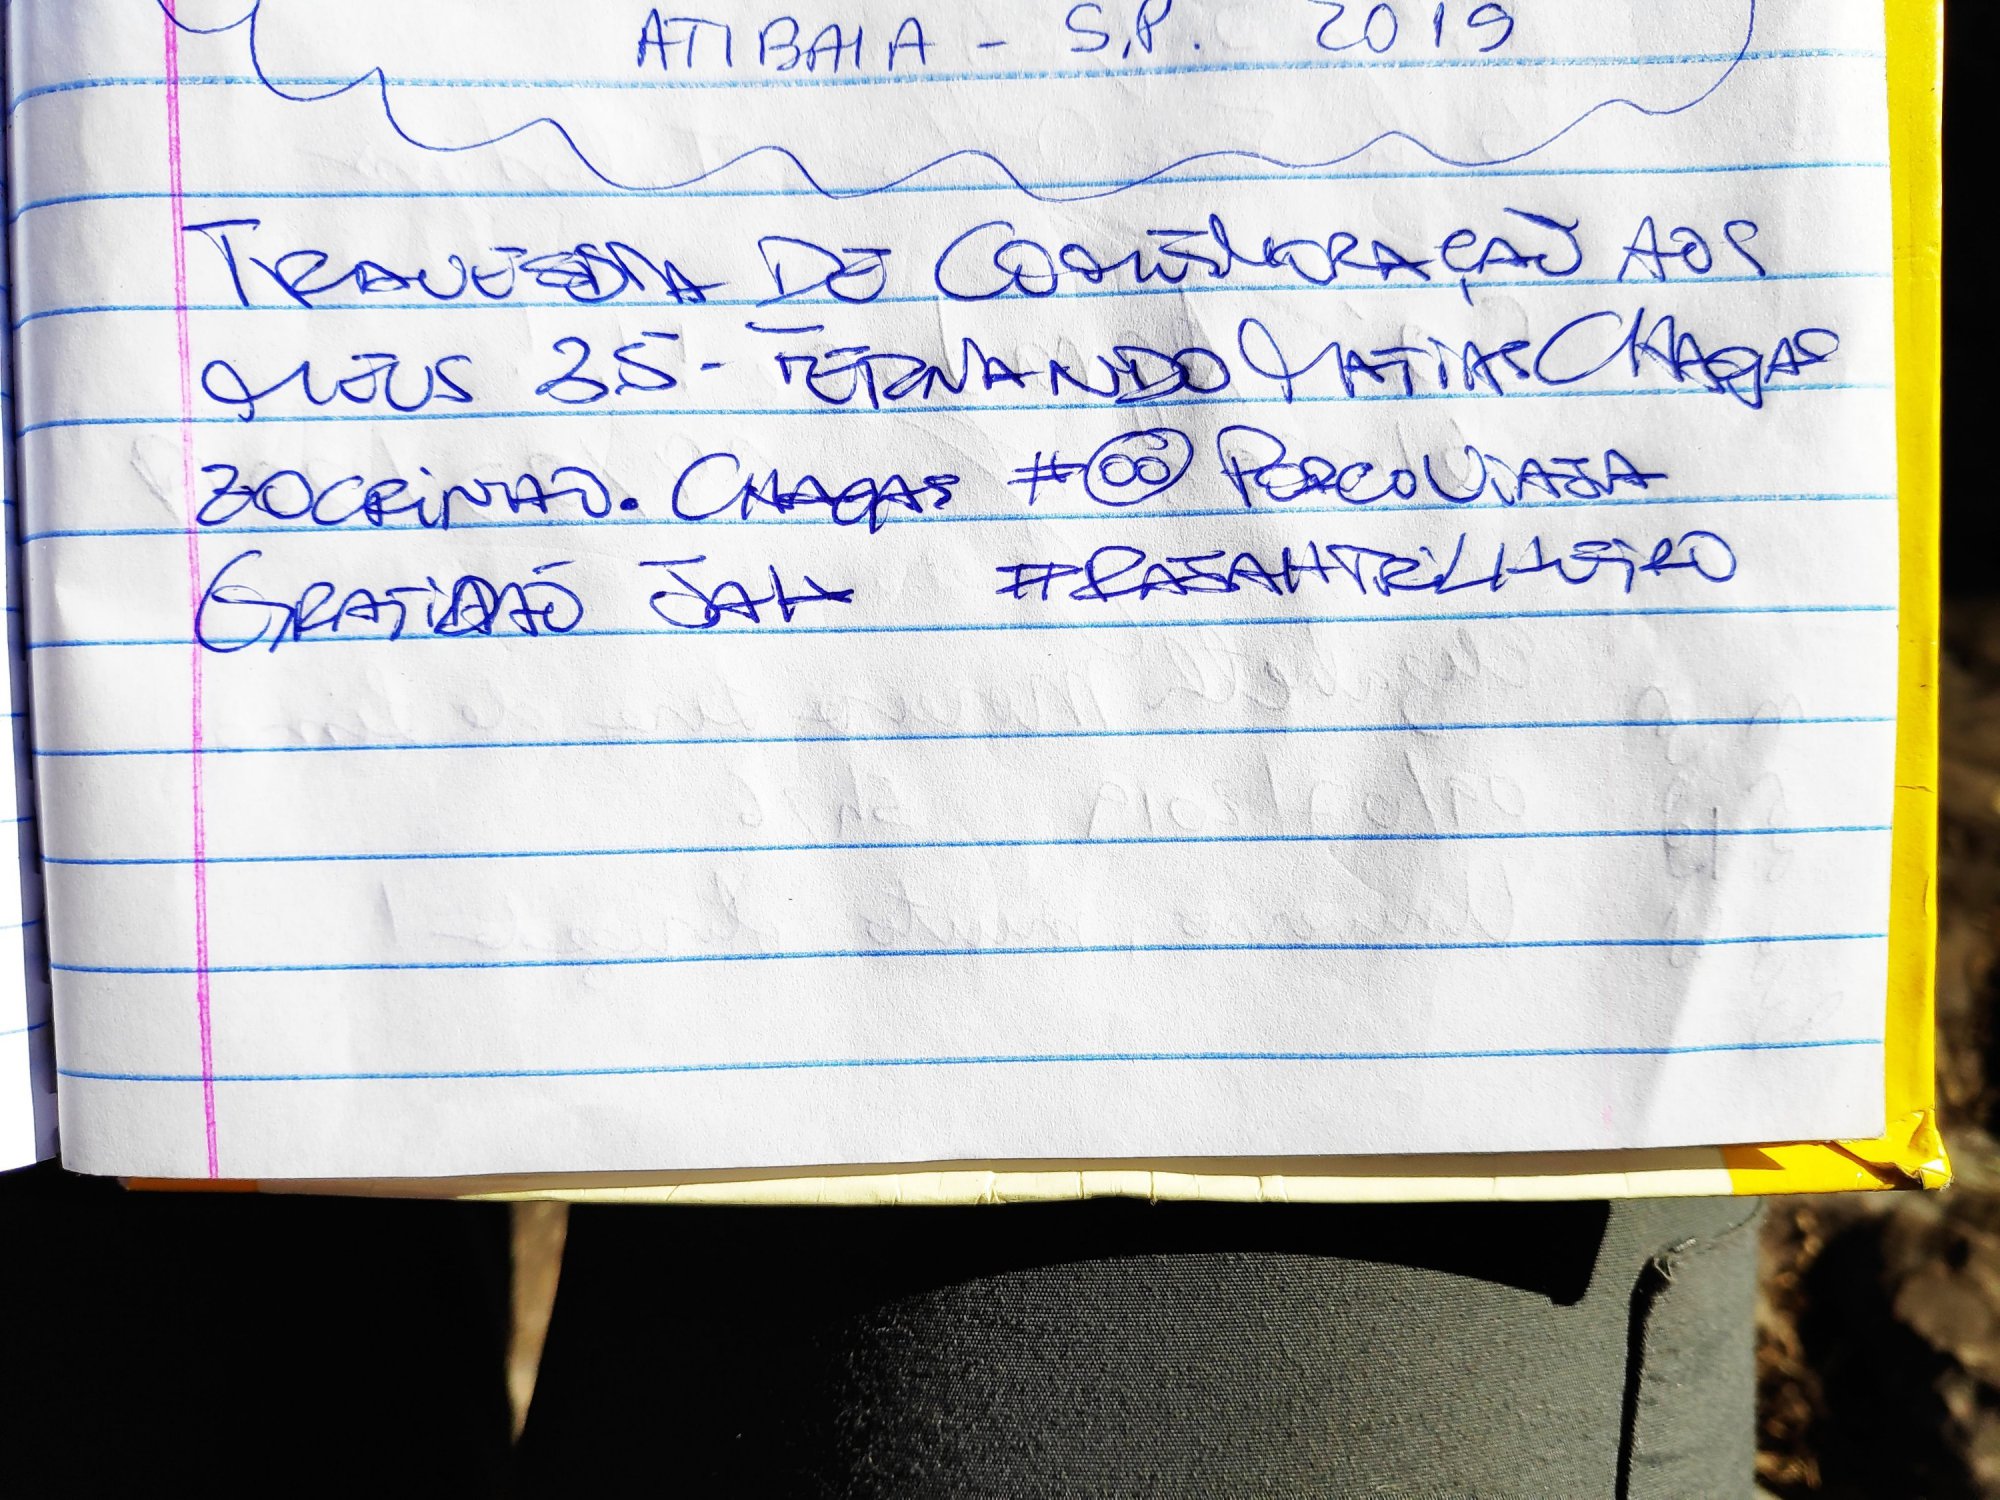 ATIBAIA - S.P. 2019
TRAVESSIA DE COMEMORAÇÃO AOS
MEUS 35 - FERNANDO MATIAS CHAGAS
CHAGAS # PORCOVIAJA
GRATIDÃO JAH #RAJAHTRILHEIRO